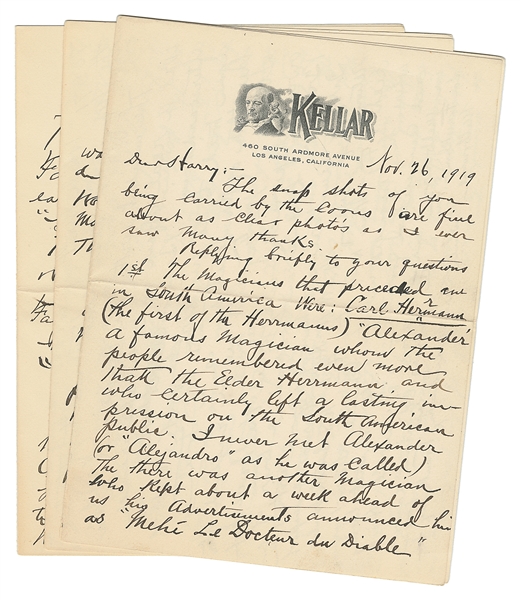 KELLAR
460 SOUTH ARDMORE AVENUE
LOS ANGELES, CALIFORNIA
Nov. 26, 1919
Dear Harry:-
The snap shots of you
being carried by the Coons are fine
about as clear photos as I ever
saw many thanks.
Replying briefly to your questions
1st The Magicians that preceded me
in South America Were: Carl Herrmann
(the first of the Herrmanns) "Alexander"
a famous Magician whom the
people remembered even more
than the Elder Herrmann and
who certainly left a lasting im-
pression on the South American
public. I never met Alexander
(or "Alejandro" as he was called)
The there was another Magician
who kept about a week ahead of
us his Advertisements announced him
as "Le Docteur du Diable"